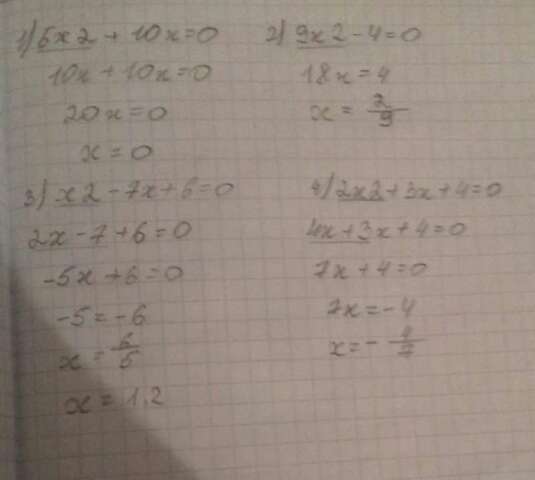 1) 5x2 + 10x = 0
10x + 10x = 0
20x = 0
x = 0
2) 9x2 - 4 = 0
18x = 4
x = 2/9
3) x2 - 7x + 6 = 0
2x - 7 + 6 = 0
-5x + 6 = 0
-5 = -6
x = 6/5
x = 1,2
4) 2x2 + 3x + 4 = 0
4x + 3x + 4 = 0
7x + 4 = 0
7x = -4
x = - 4/7